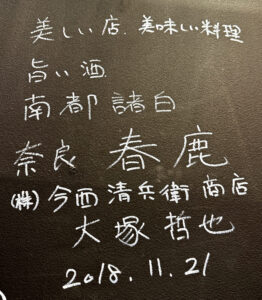 美しい店、美味しい料理
旨い酒
南都諸白
奈良 春鹿
(株)今西清兵衛商店
大塚哲也
2018.11.21